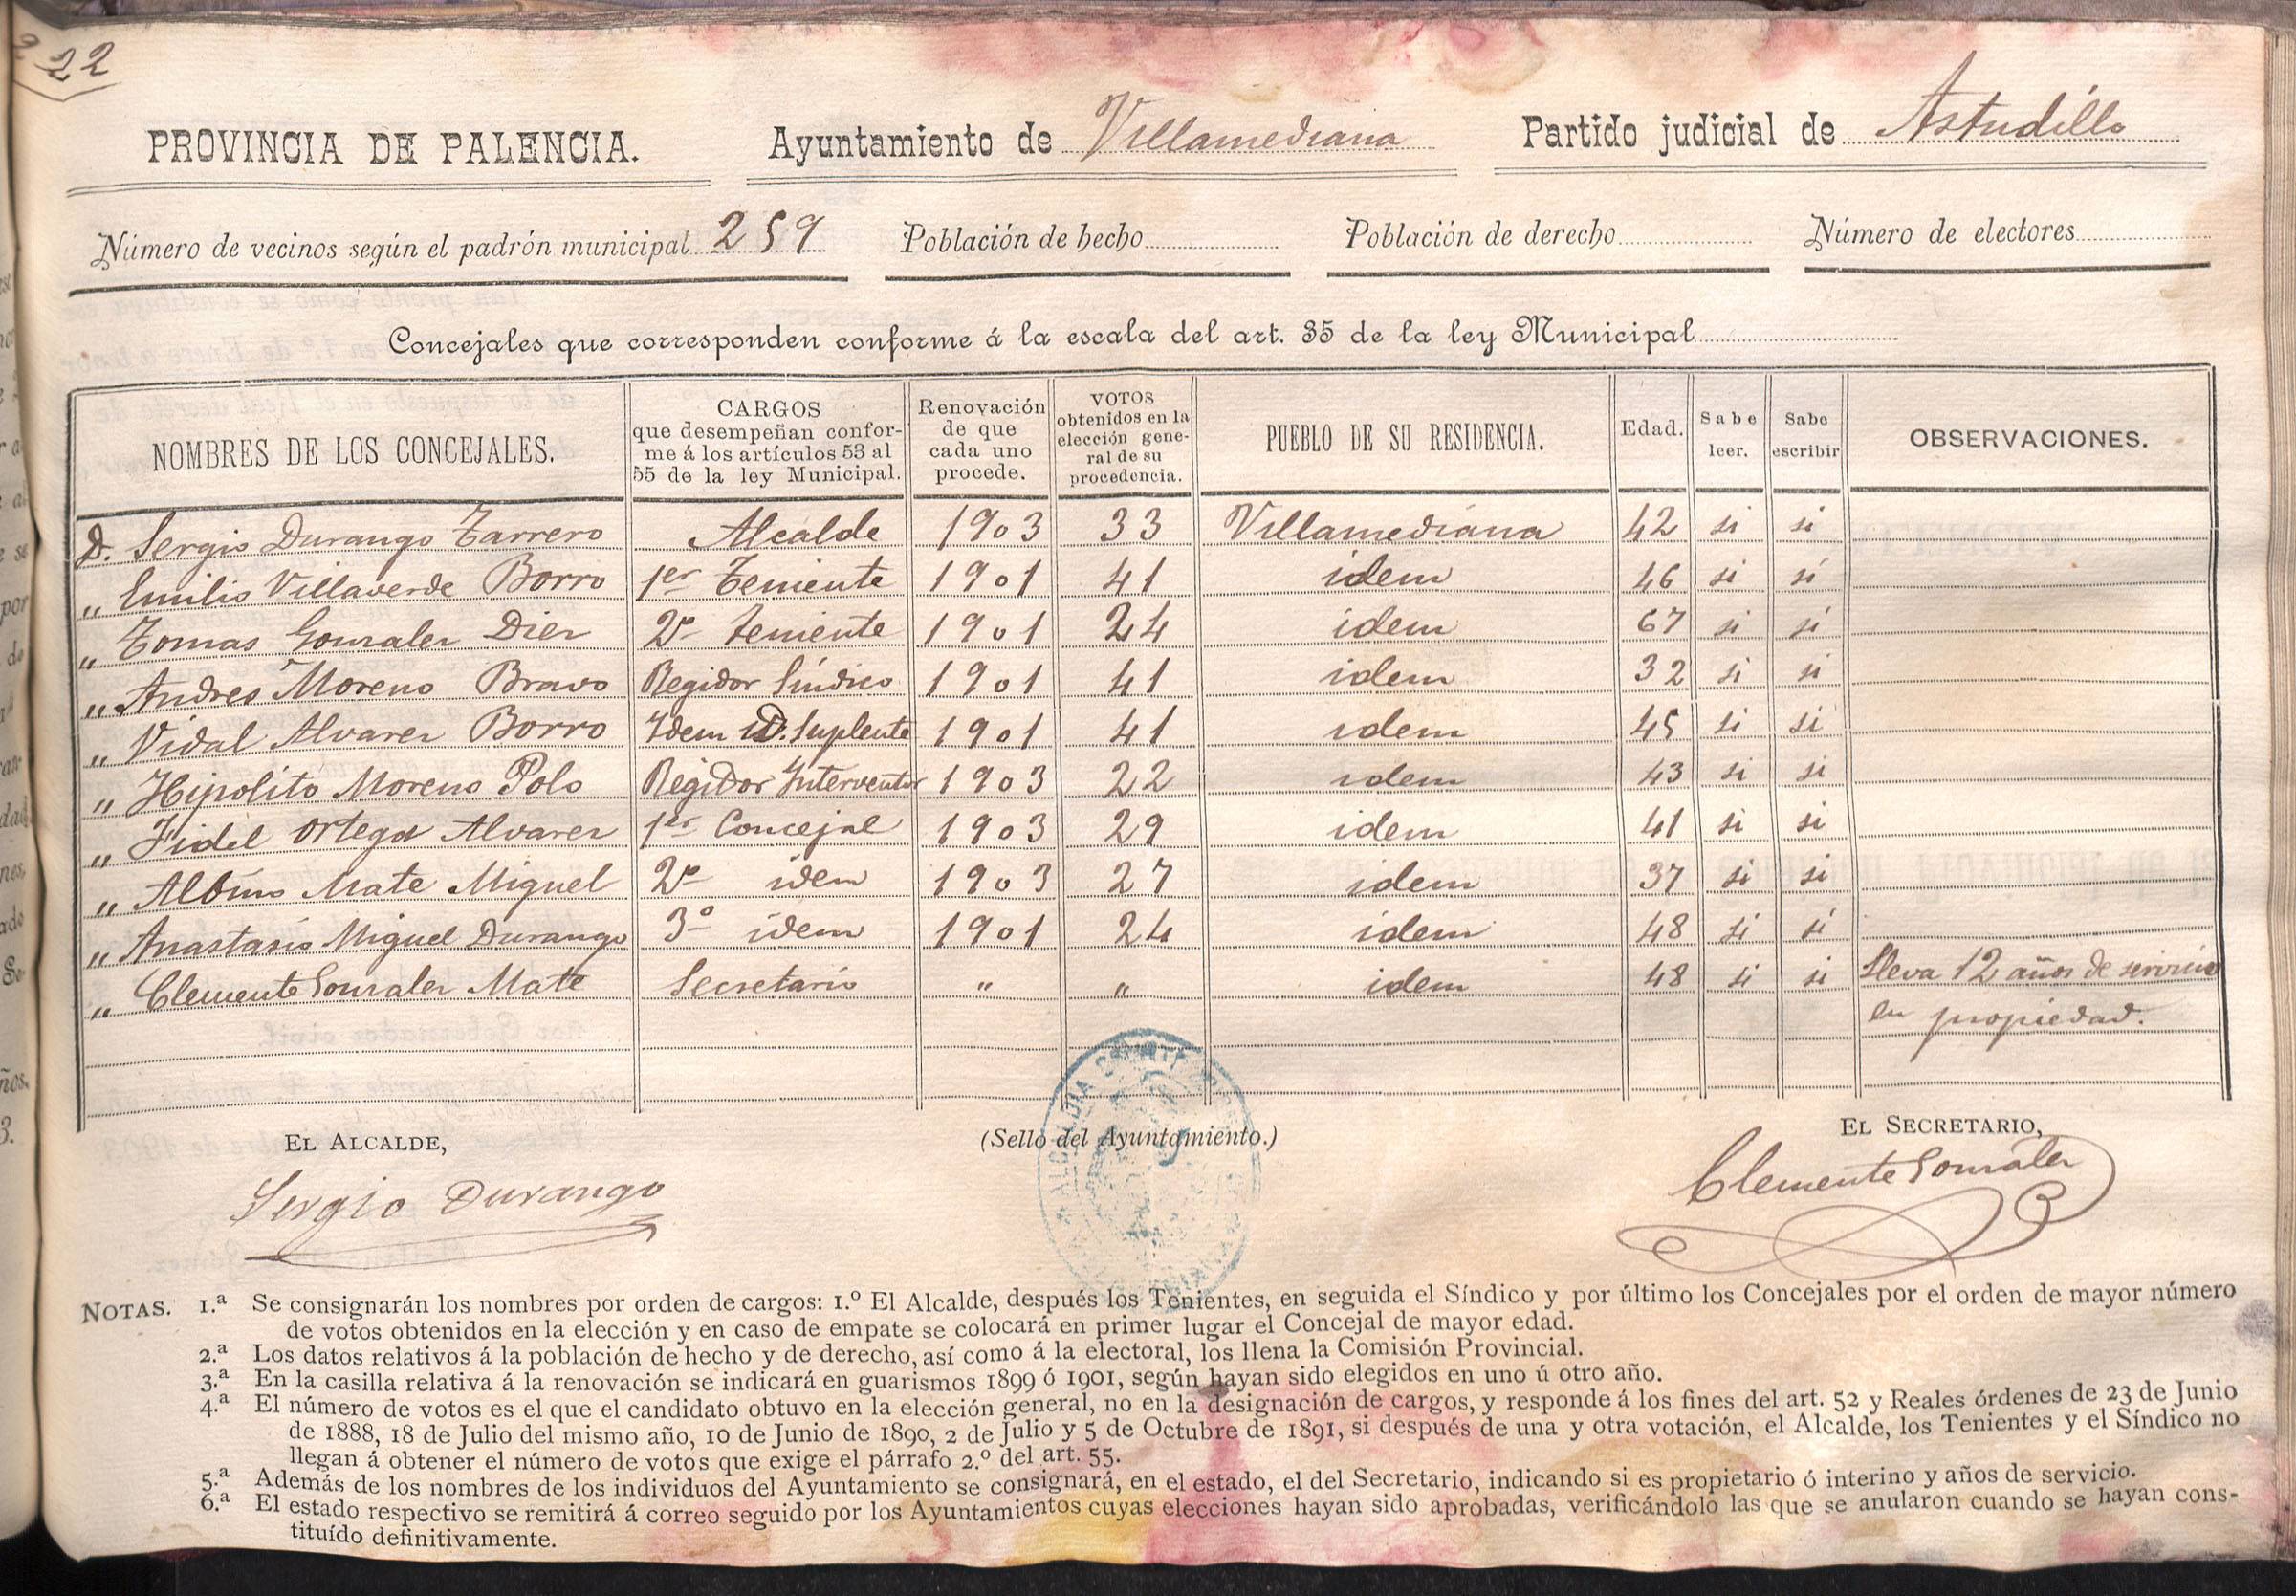 22
PROVINCIA DE PALENCIA. Ayuntamiento de Villamediana Partido judicial de Astudillo
Número de vecinos según el padrón municipal 259 Población de hecho Población de derecho Número de electores
Concejales que corresponden conforme á la escala del art. 35 de la ley Municipal
NOMBRES DE LOS CONCEJALES. CARGOS que desempeñan conforme á los artículos 53 al 55 de la ley Municipal. Renovación de que cada uno procede. VOTOS obtenidos en la elección general de su procedencia. PUEBLO DE SU RESIDENCIA. Edad. Sabe leer. Sabe escribir OBSERVACIONES.
D. Sergio Durango Tarrero Alcalde 1903 33 Villamediana 42 si si
" Emilio Villaverde Borro 1er Teniente 1901 41 idem 46 si si
" Tomas Gonzalez Diez 2º Teniente 1901 24 idem 67 si si
" Andres Moreno Bravo Regidor Síndico 1901 41 idem 32 si si
" Vidal Alvarez Borro Idem id. Suplente 1901 41 idem 45 si si
" Hipolito Moreno Polo Regidor Interventor 1903 22 idem 43 si si
" Fidel Ortega Alvarez 1er Concejal 1903 29 idem 41 si si
" Albino Mate Miguel 2º idem 1903 27 idem 37 si si
" Anastasio Miguel Durango 3º idem 1901 24 idem 48 si si
" Clemente Gonzalez Mate Secretario " " idem 48 si si Lleva 12 años de servicio
en propiedad.
EL ALCALDE, (Sello del Ayuntamiento.) EL SECRETARIO,
Sergio Durango Clemente Gonzalez
NOTAS. 1.ª Se consignarán los nombres por orden de cargos: 1.º El Alcalde, después los Tenientes, en seguida el Síndico y por último los Concejales por el orden de mayor número
de votos obtenidos en la elección y en caso de empate se colocará en primer lugar el Concejal de mayor edad.
2.ª Los datos relativos á la población de hecho y de derecho, así como á la electoral, los llena la Comisión Provincial.
3.ª En la casilla relativa á la renovación se indicará en guarismos 1899 ó 1901, según hayan sido elegidos en uno ú otro año.
4.ª El número de votos es el que el candidato obtuvo en la elección general, no en la designación de cargos, y responde á los fines del art. 52 y Reales órdenes de 23 de Junio
de 1888, 18 de Julio del mismo año, 10 de Junio de 1890, 2 de Julio y 5 de Octubre de 1891, si después de una y otra votación, el Alcalde, los Tenientes y el Síndico no
llegan á obtener el número de votos que exige el párrafo 2.º del art. 55.
5.ª Además de los nombres de los individuos del Ayuntamiento se consignará, en el estado, el del Secretario, indicando si es propietario ó interino y años de servicio.
6.ª El estado respectivo se remitirá á correo seguido por los Ayuntamientos cuyas elecciones hayan sido aprobadas, verificándolo las que se anularon cuando se hayan cons-
tituído definitivamente.